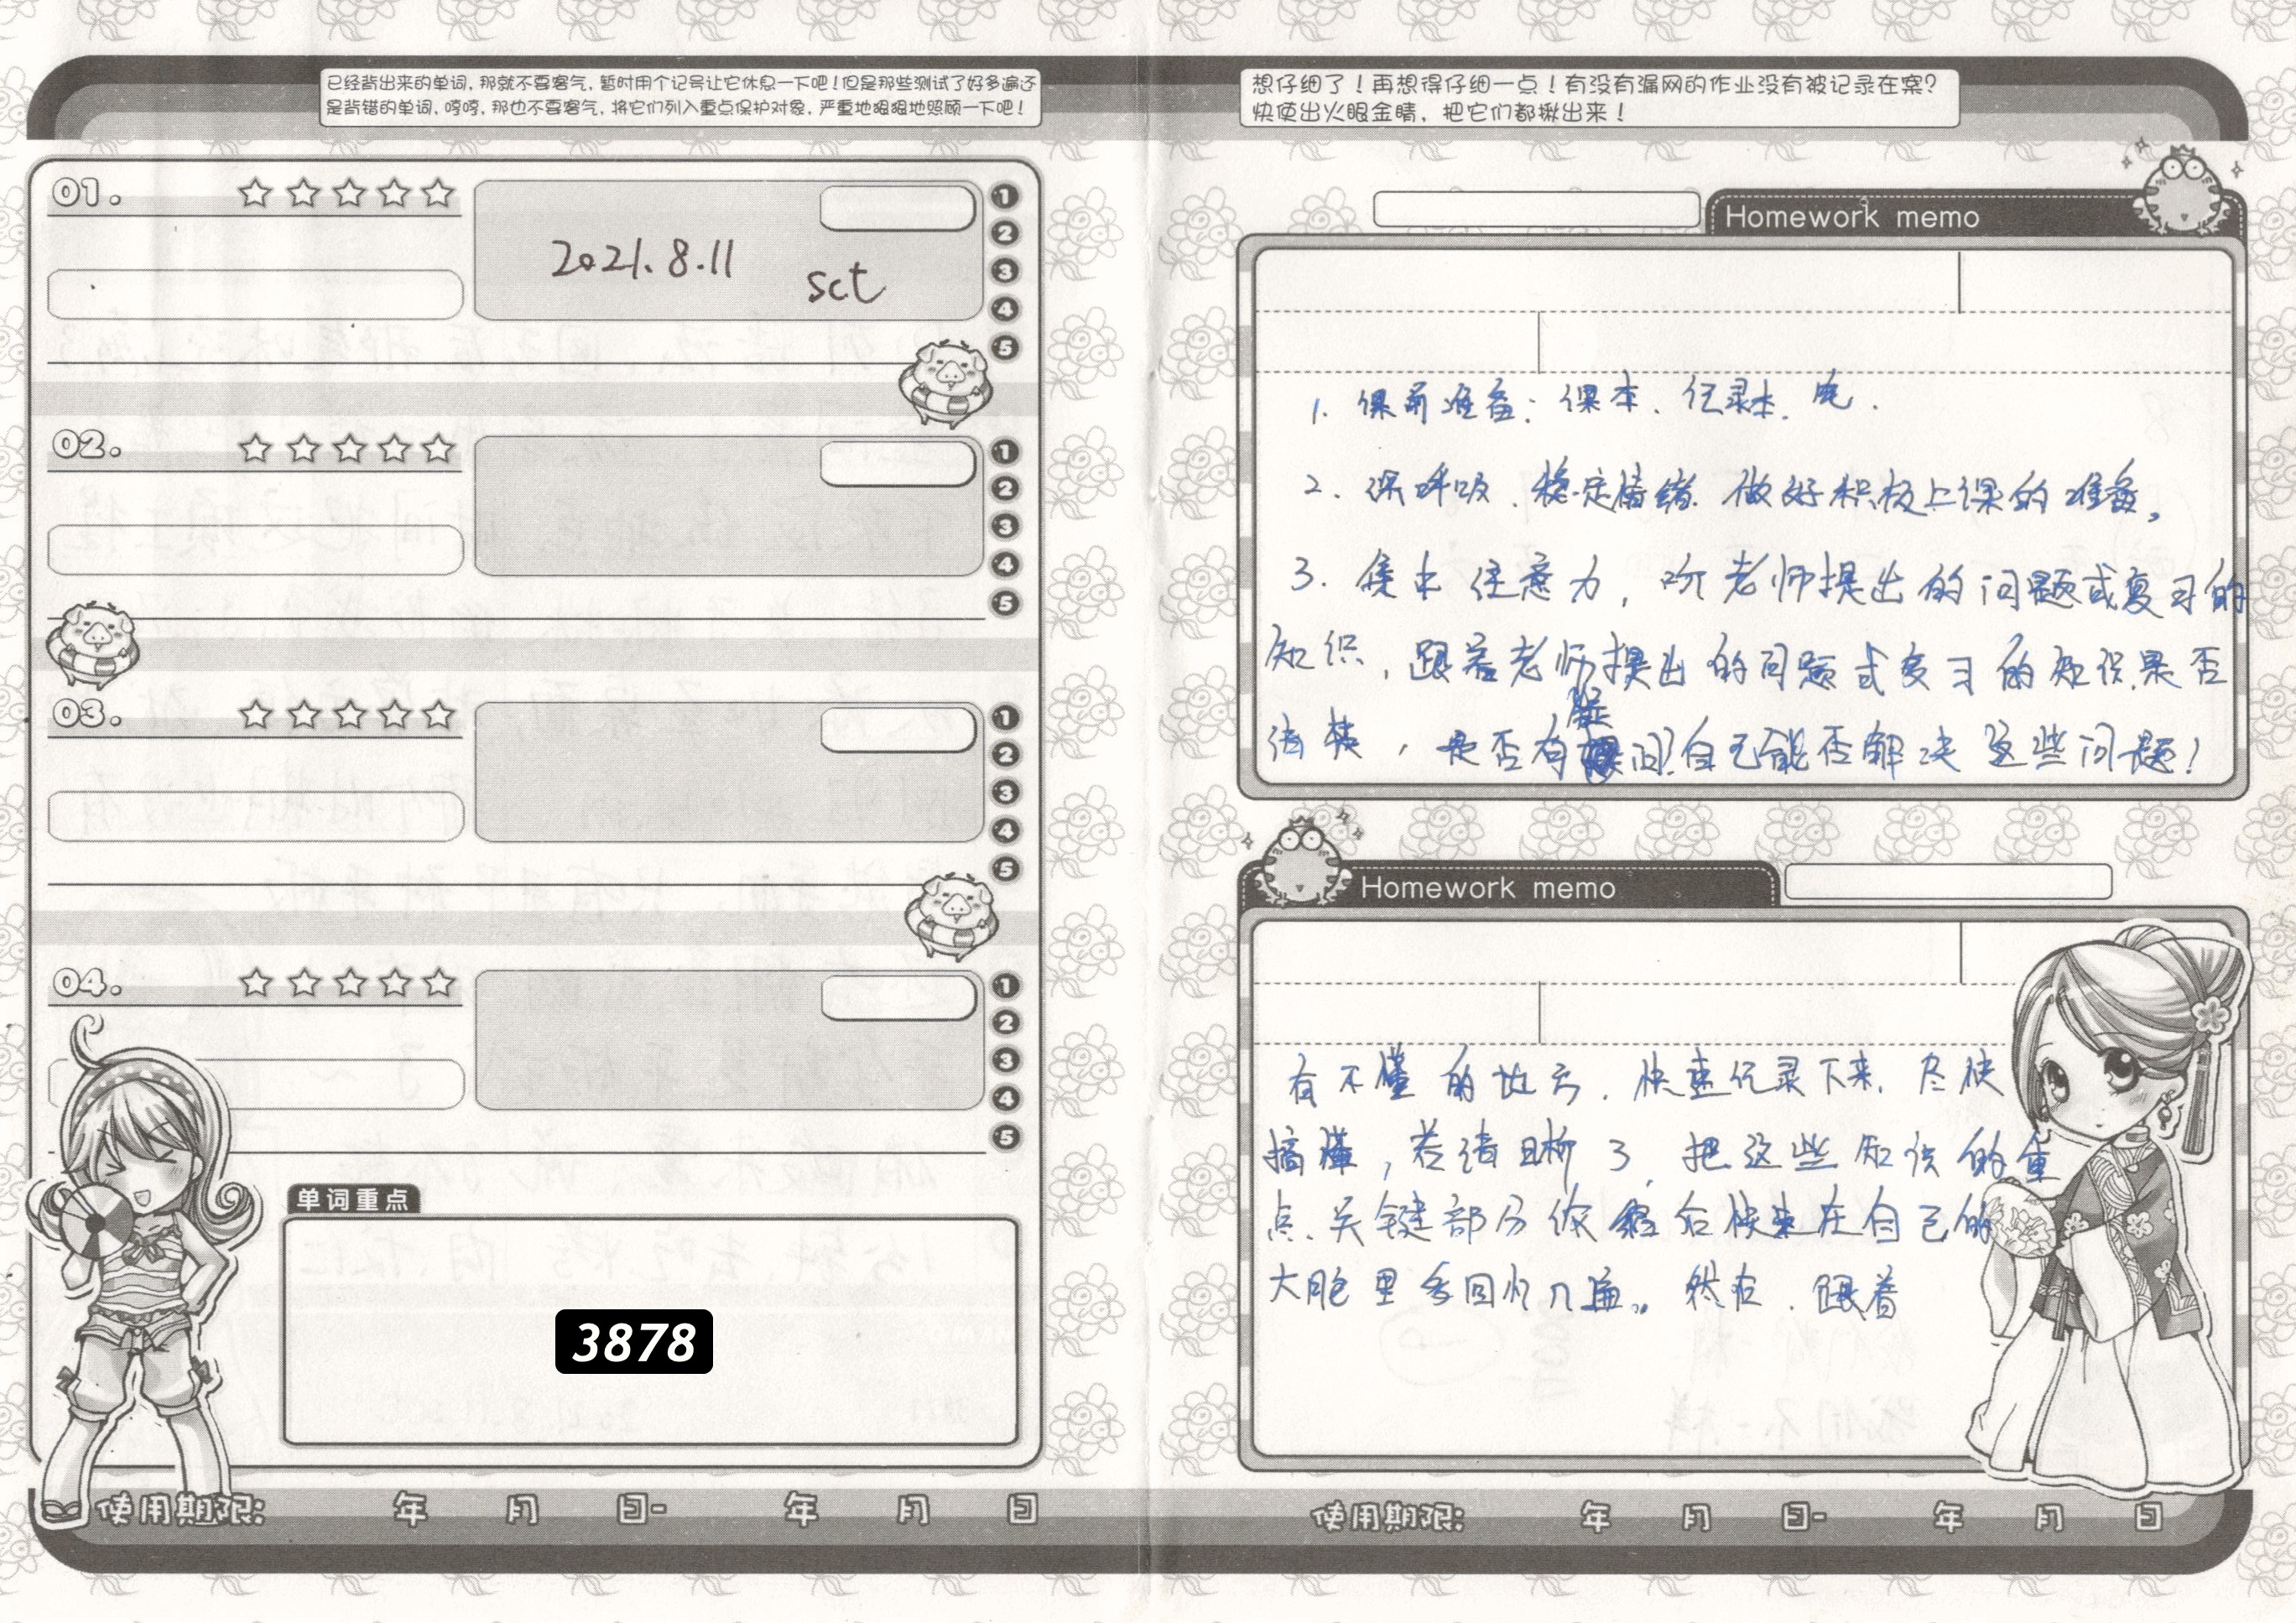 已经背出来的单词，那就不要客气，暂时用个记号让它休息一下吧！但是那些测试了好多遍还
是背错的单词，哼哼，那也不要客气，将它们列入重点保护对象，严重地狠狠地照顾一下吧！
01.
2021.8.11
sct
1
2
3
4
5
02.
1
2
3
4
5
03.
1
2
3
4
5
04.
1
2
3
4
5
单词重点
3878
使用期限: 年 月 日- 年 月 日
想仔细了！再想得仔细一点！有没有漏网的作业没有被记录在案？
快使出火眼金睛，把它们都揪出来！
Homework memo
1. 课前准备：课本、记录本、笔.
2. 深呼吸、稳定情绪 做好积极上课的准备。
3. 集中注意力，听老师提出的问题或复习的
知识，跟着老师提出的问题或复习的知识是否
清楚，是否有疑问？自己能否解决这些问题！
Homework memo
有不懂的地方、快速记录下来，尽快
搞懂，若清晰了，把这些知识的重
点、关键部分依 后快速在自己的
大脑里多回忆几遍。然后、跟着
使用期限: 年 月 日- 年 月 日